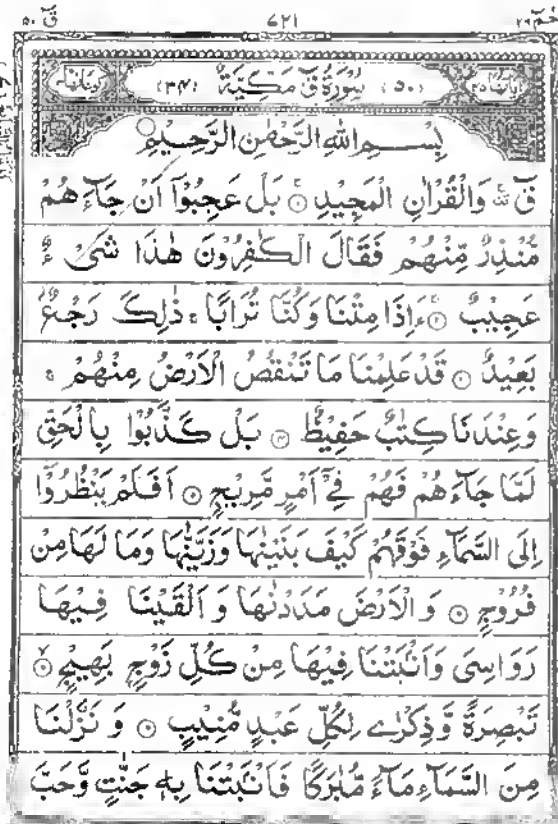 قٓ ٥٠
٦٢١
حٰمٓ ٢٦
(٥٠) سُوْرَةُ قٓ مَكِّيَّةٌ (٣٤)
بِسْــــمِ اللهِ الرَّحْمٰنِ الرَّحِيْمِ
قٓ ۚ وَالْقُرْاٰنِ الْمَجِيْدِ ۝ بَلْ عَجِبُوْۤا اَنْ جَآءَ هُمْ
مُّنْذِرٌ مِّنْهُمْ فَقَالَ الْكٰفِرُوْنَ هٰذَا شَىْءٌ
عَجِيْبٌ ۝ ءَاِذَا مِتْنَا وَكُنَّا تُرَابًا ۚ ذٰلِكَ رَجْعٌۢ
بَعِيْدٌ ۝ قَدْ عَلِمْنَا مَا تَنْقُصُ الْاَرْضُ مِنْهُمْ ۚ
وَعِنْدَنَا كِتٰبٌ حَفِيْظٌ ۝ بَلْ كَذَّبُوْا بِالْحَقِّ
لَمَّا جَآءَ هُمْ فَهُمْ فِىْۤ اَمْرٍ مَّرِيْجٍ ۝ اَفَلَمْ يَنْظُرُوْۤا
اِلَى السَّمَآءِ فَوْقَهُمْ كَيْفَ بَنَيْنٰهَا وَزَيَّنّٰهَا وَمَا لَهَا مِنْ
فُرُوْجٍ ۝ وَ الْاَرْضَ مَدَدْنٰهَا وَ اَلْقَيْنَا فِيْهَا
رَوَاسِىَ وَاَنْۢبَتْنَا فِيْهَا مِنْ كُلِّ زَوْجٍۢ بَهِيْجٍ ۝
تَبْصِرَةً وَّ ذِكْرٰى لِكُلِّ عَبْدٍ مُّنِيْبٍ ۝ وَ نَزَّلْنَا
مِنَ السَّمَآءِ مَآءً مُّبٰرَكًا فَاَنْۢبَتْنَا بِهٖ جَنّٰتٍ وَّحَبَّ